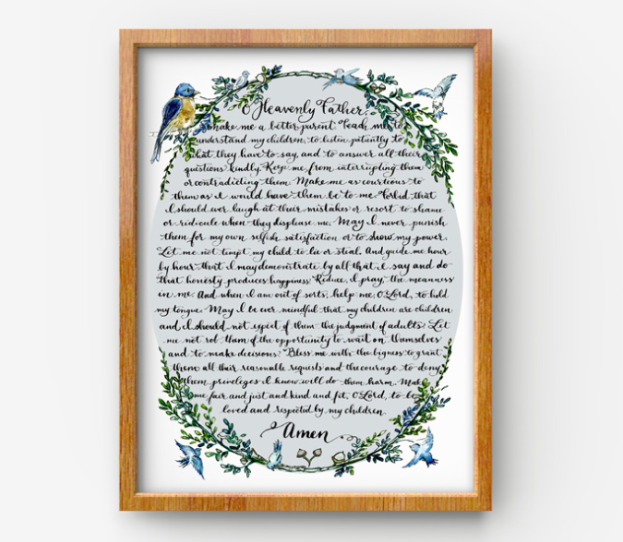 O Heavenly Father,
make me a better parent. Teach me to
understand my children, to listen patiently to
what they have to say, and to answer all their
questions kindly. Keep me from interrupting them
or contradicting them. Make me as courteous to
them as I would have them be to me. Forbid that
I should ever laugh at their mistakes or resort to shame
or ridicule when they displease me. May I never punish
them for my own selfish satisfaction or to show my power.
Let me not tempt my child to lie or steal. And guide me hour
by hour that I may demonstrate by all that I say and do
that honesty produces happiness. Reduce, I pray, the meanness
in me. And when I am out of sorts, help me, O Lord, to hold
my tongue. May I be ever mindful that my children are children
and I should not expect of them the judgment of adults. Let
me not rob them of the opportunity to wait on themselves
and to make decisions. Bless me with the bigness to grant
them all their reasonable requests and the courage to deny
them privileges I know will do them harm. Make
me fair and just and kind and fit, O Lord, to be
loved and respected by my children
Amen